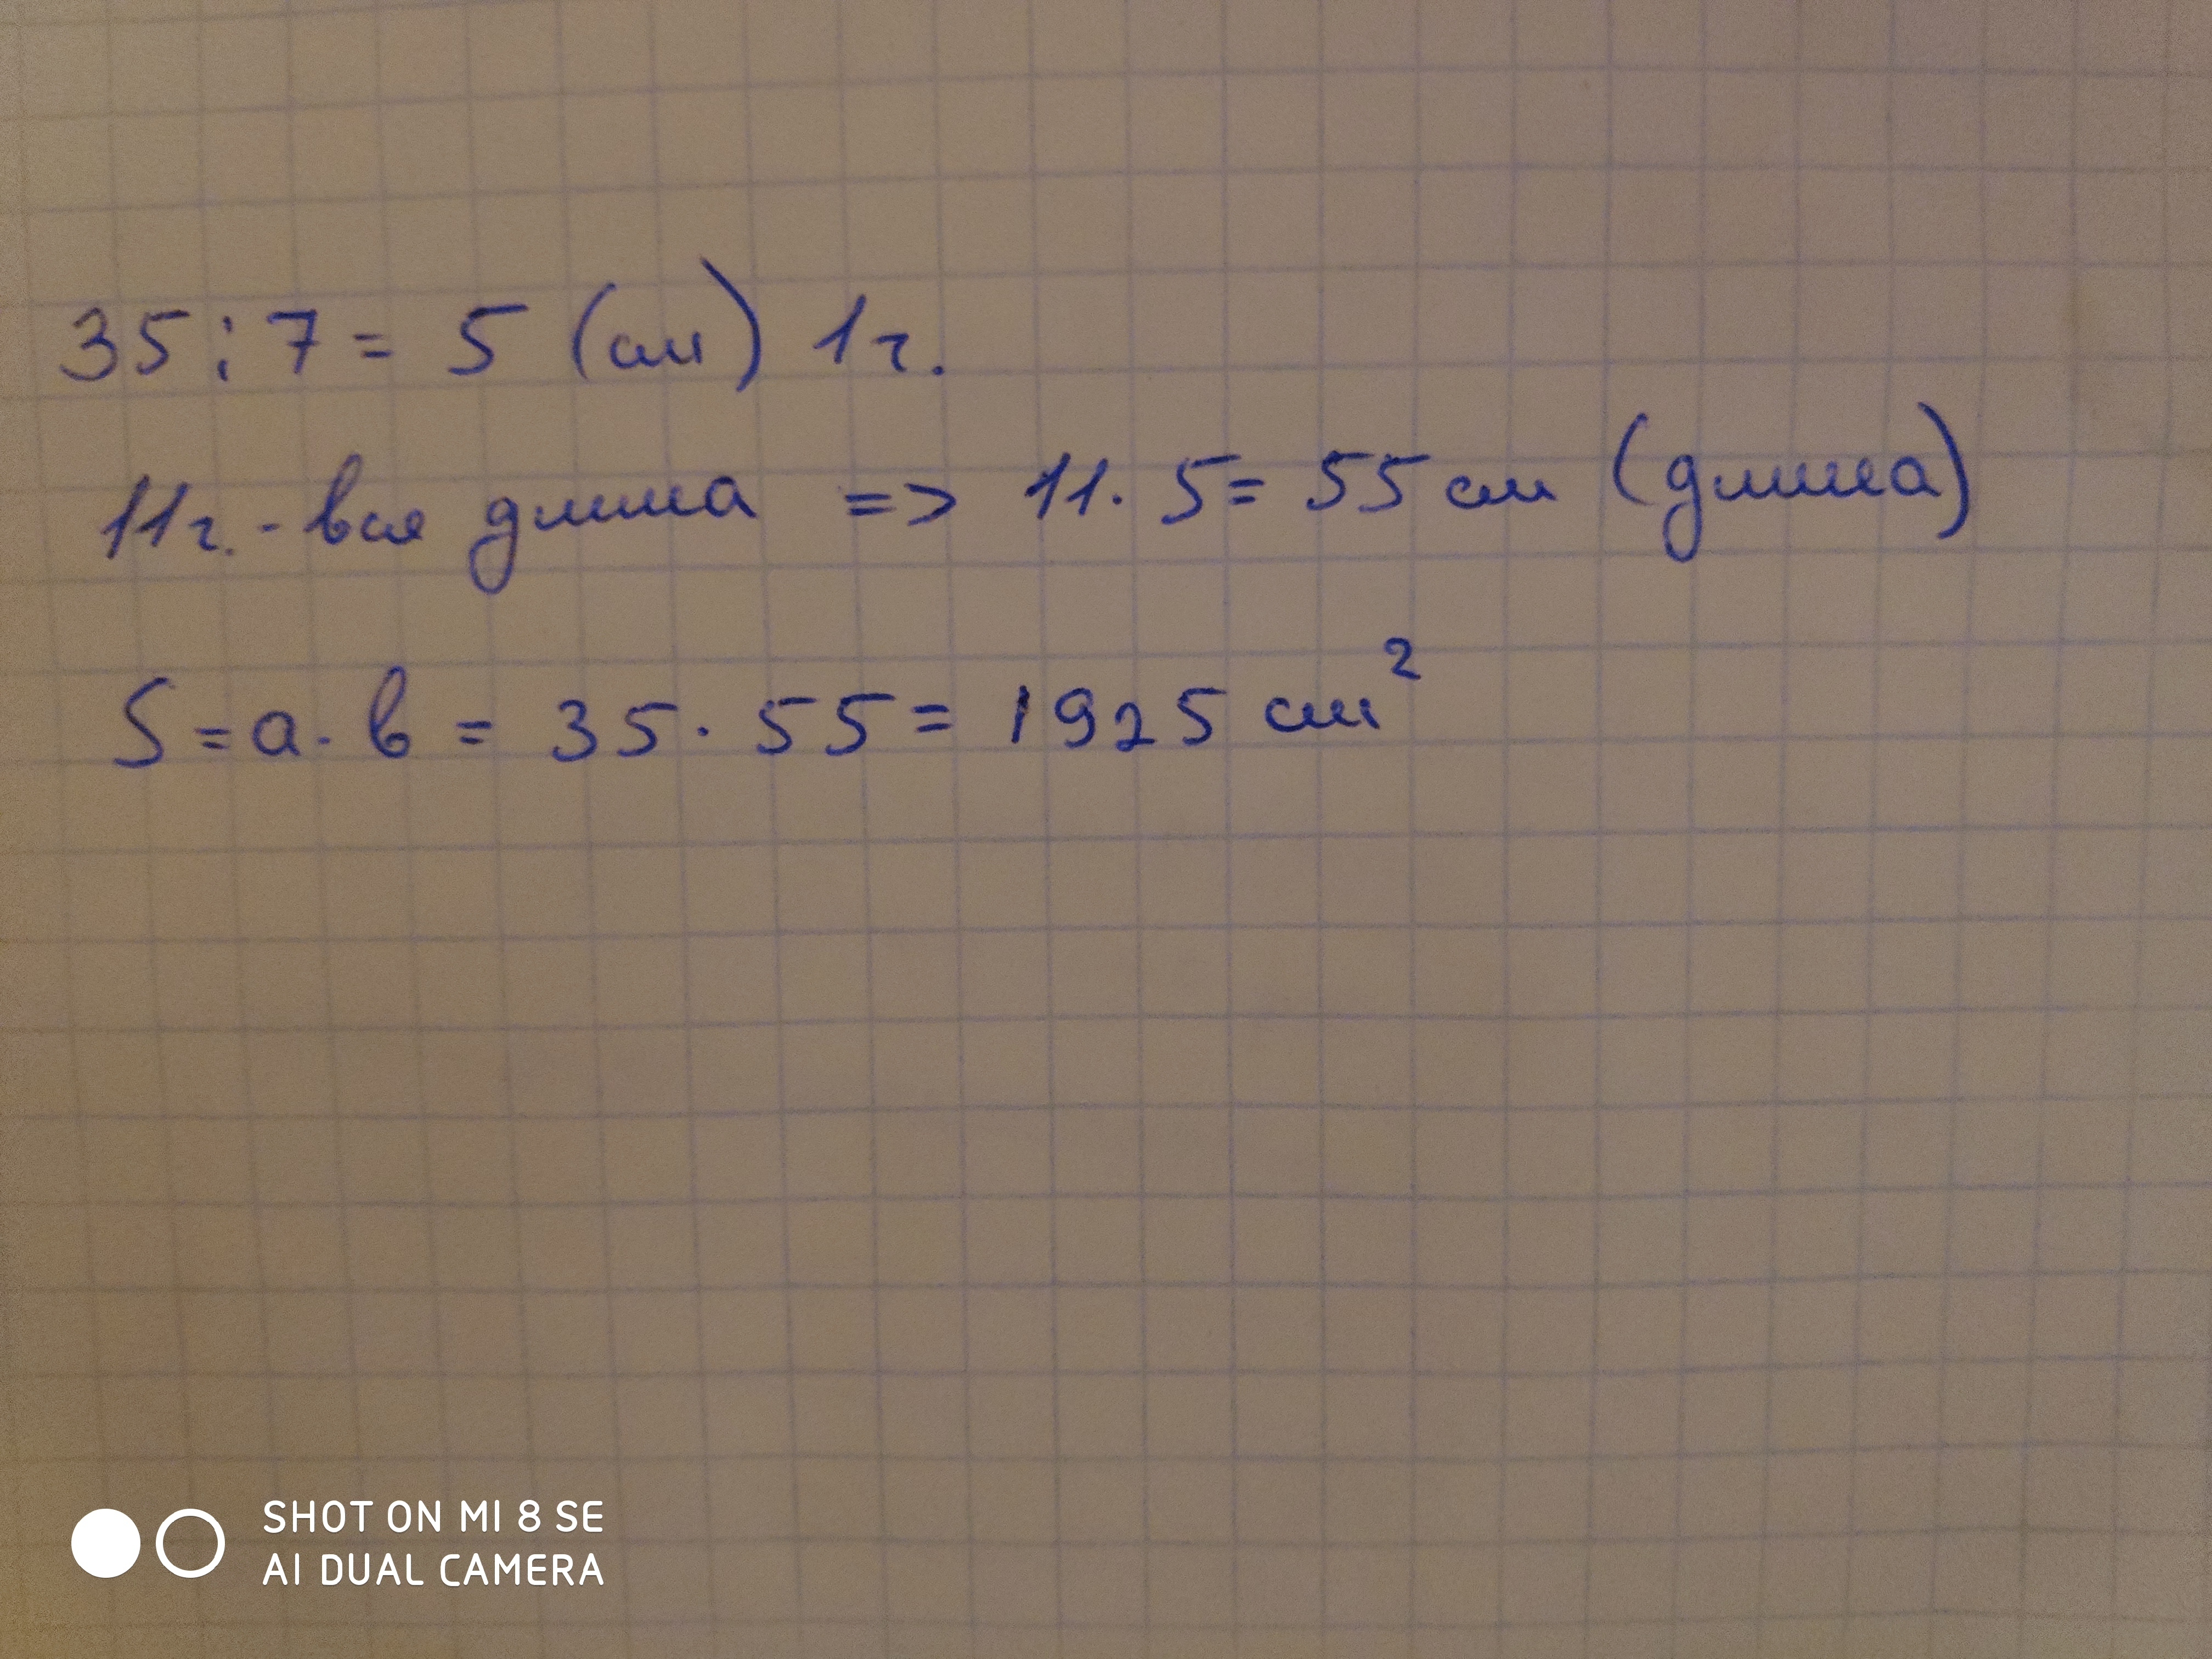 35 : 7 = 5 (см) 1ч.
11ч. - вся длина => 11 · 5 = 55 см (длина)
S = a · b = 35 · 55 = 1925 см²
SHOT ON MI 8 SE
AI DUAL CAMERA